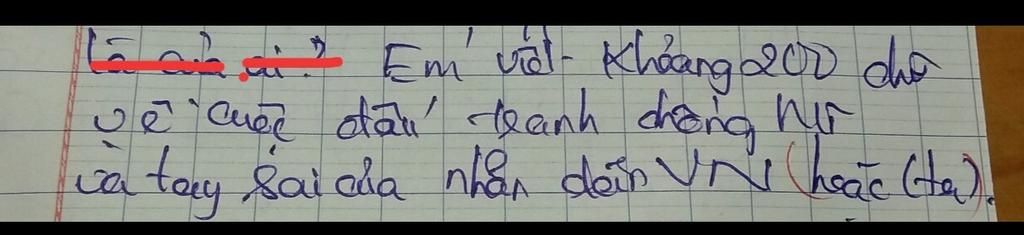 là của ai? Em viết khoảng 200 chữ
về cuộc đấu tranh chống Mĩ
và tay sai của nhân dân VN (hoặc (ta).